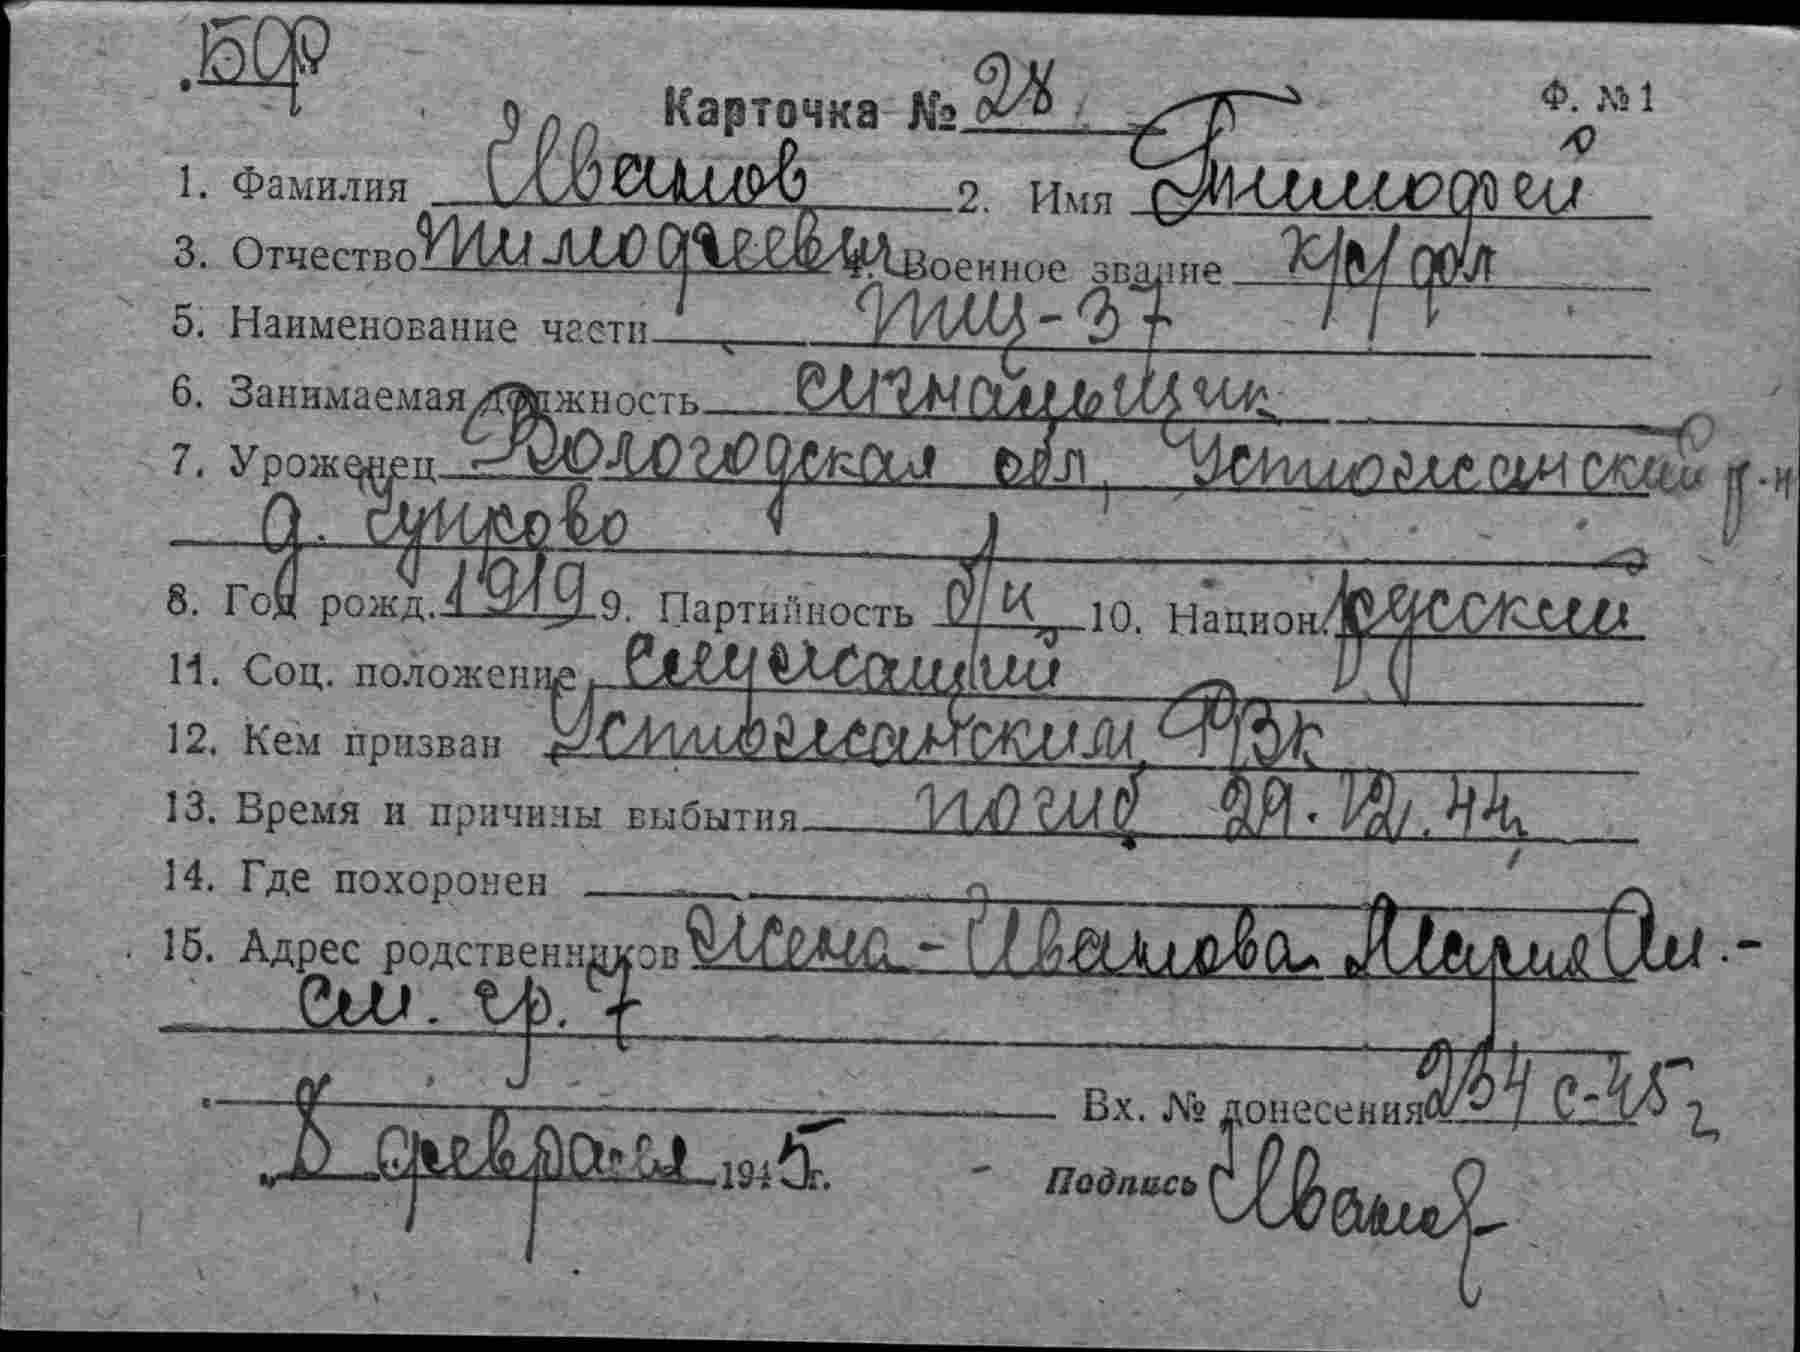 КБФ
Карточка № 28
Ф. № 1
1. Фамилия Иванов 2. Имя Тимофей
3. Отчество Тимофеевич 4. Военное звание к/с/фл
5. Наименование части ТЩ-37
6. Занимаемая должность сигнальщик
7. Уроженец Вологодская обл, Устюжанский р-н
д. Чупрово
8. Год рожд. 1919 9. Партийность б/п 10. Национ. русский
11. Соц. положение служащий
12. Кем призван Устюжанским РВК
13. Время и причины выбытия погиб 29.12.44г
14. Где похоронен
15. Адрес родственников жена - Иванова Мария Ан. -
см. гр. 7
Вх. № донесения 234 с-45г
„8 февраля 1945г.
Подпись